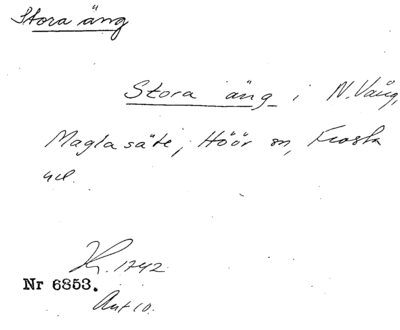 Stora äng
Stora äng i N. Vång,
Maglasäte, Höör sn, Frosta
hd.
Kr. 1742
Nr 6853.
Akt 10.